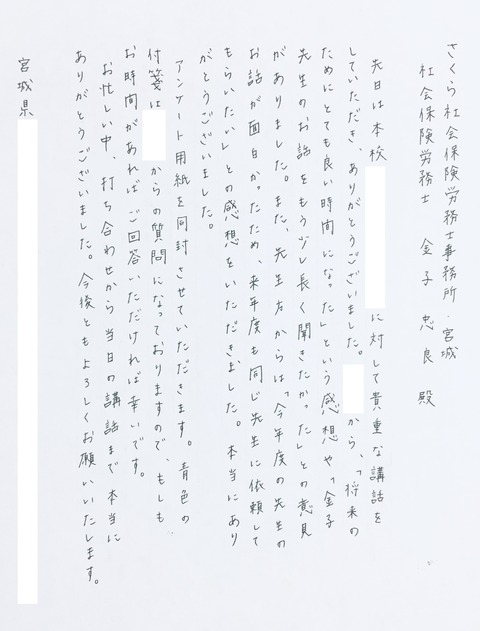 さくら社会保険労務士事務所・宮城
社会保険労務士　金子　忠良　殿
先日は本校　に対して貴重な講話を
していただき、ありがとうございました。　から、「将来の
ためにとても良い時間になった」という感想や「金子
先生のお話をもう少し長く聞きたかった」との意見
がありました。また、先生方からは「今年度の先生の
お話が面白かったため、来年度も同じ先生に依頼して
もらいたい」との感想をいただきました。本当にあり
がとうございました。
アンケート用紙を同封させていただきます。青色の
付箋は　からの質問になっておりますので、もしも
お時間があればご回答いただければ幸いです。
お忙しい中、打ち合わせから当日の講話まで本当に
ありがとうございました。今後ともよろしくお願いいたします。
宮城県